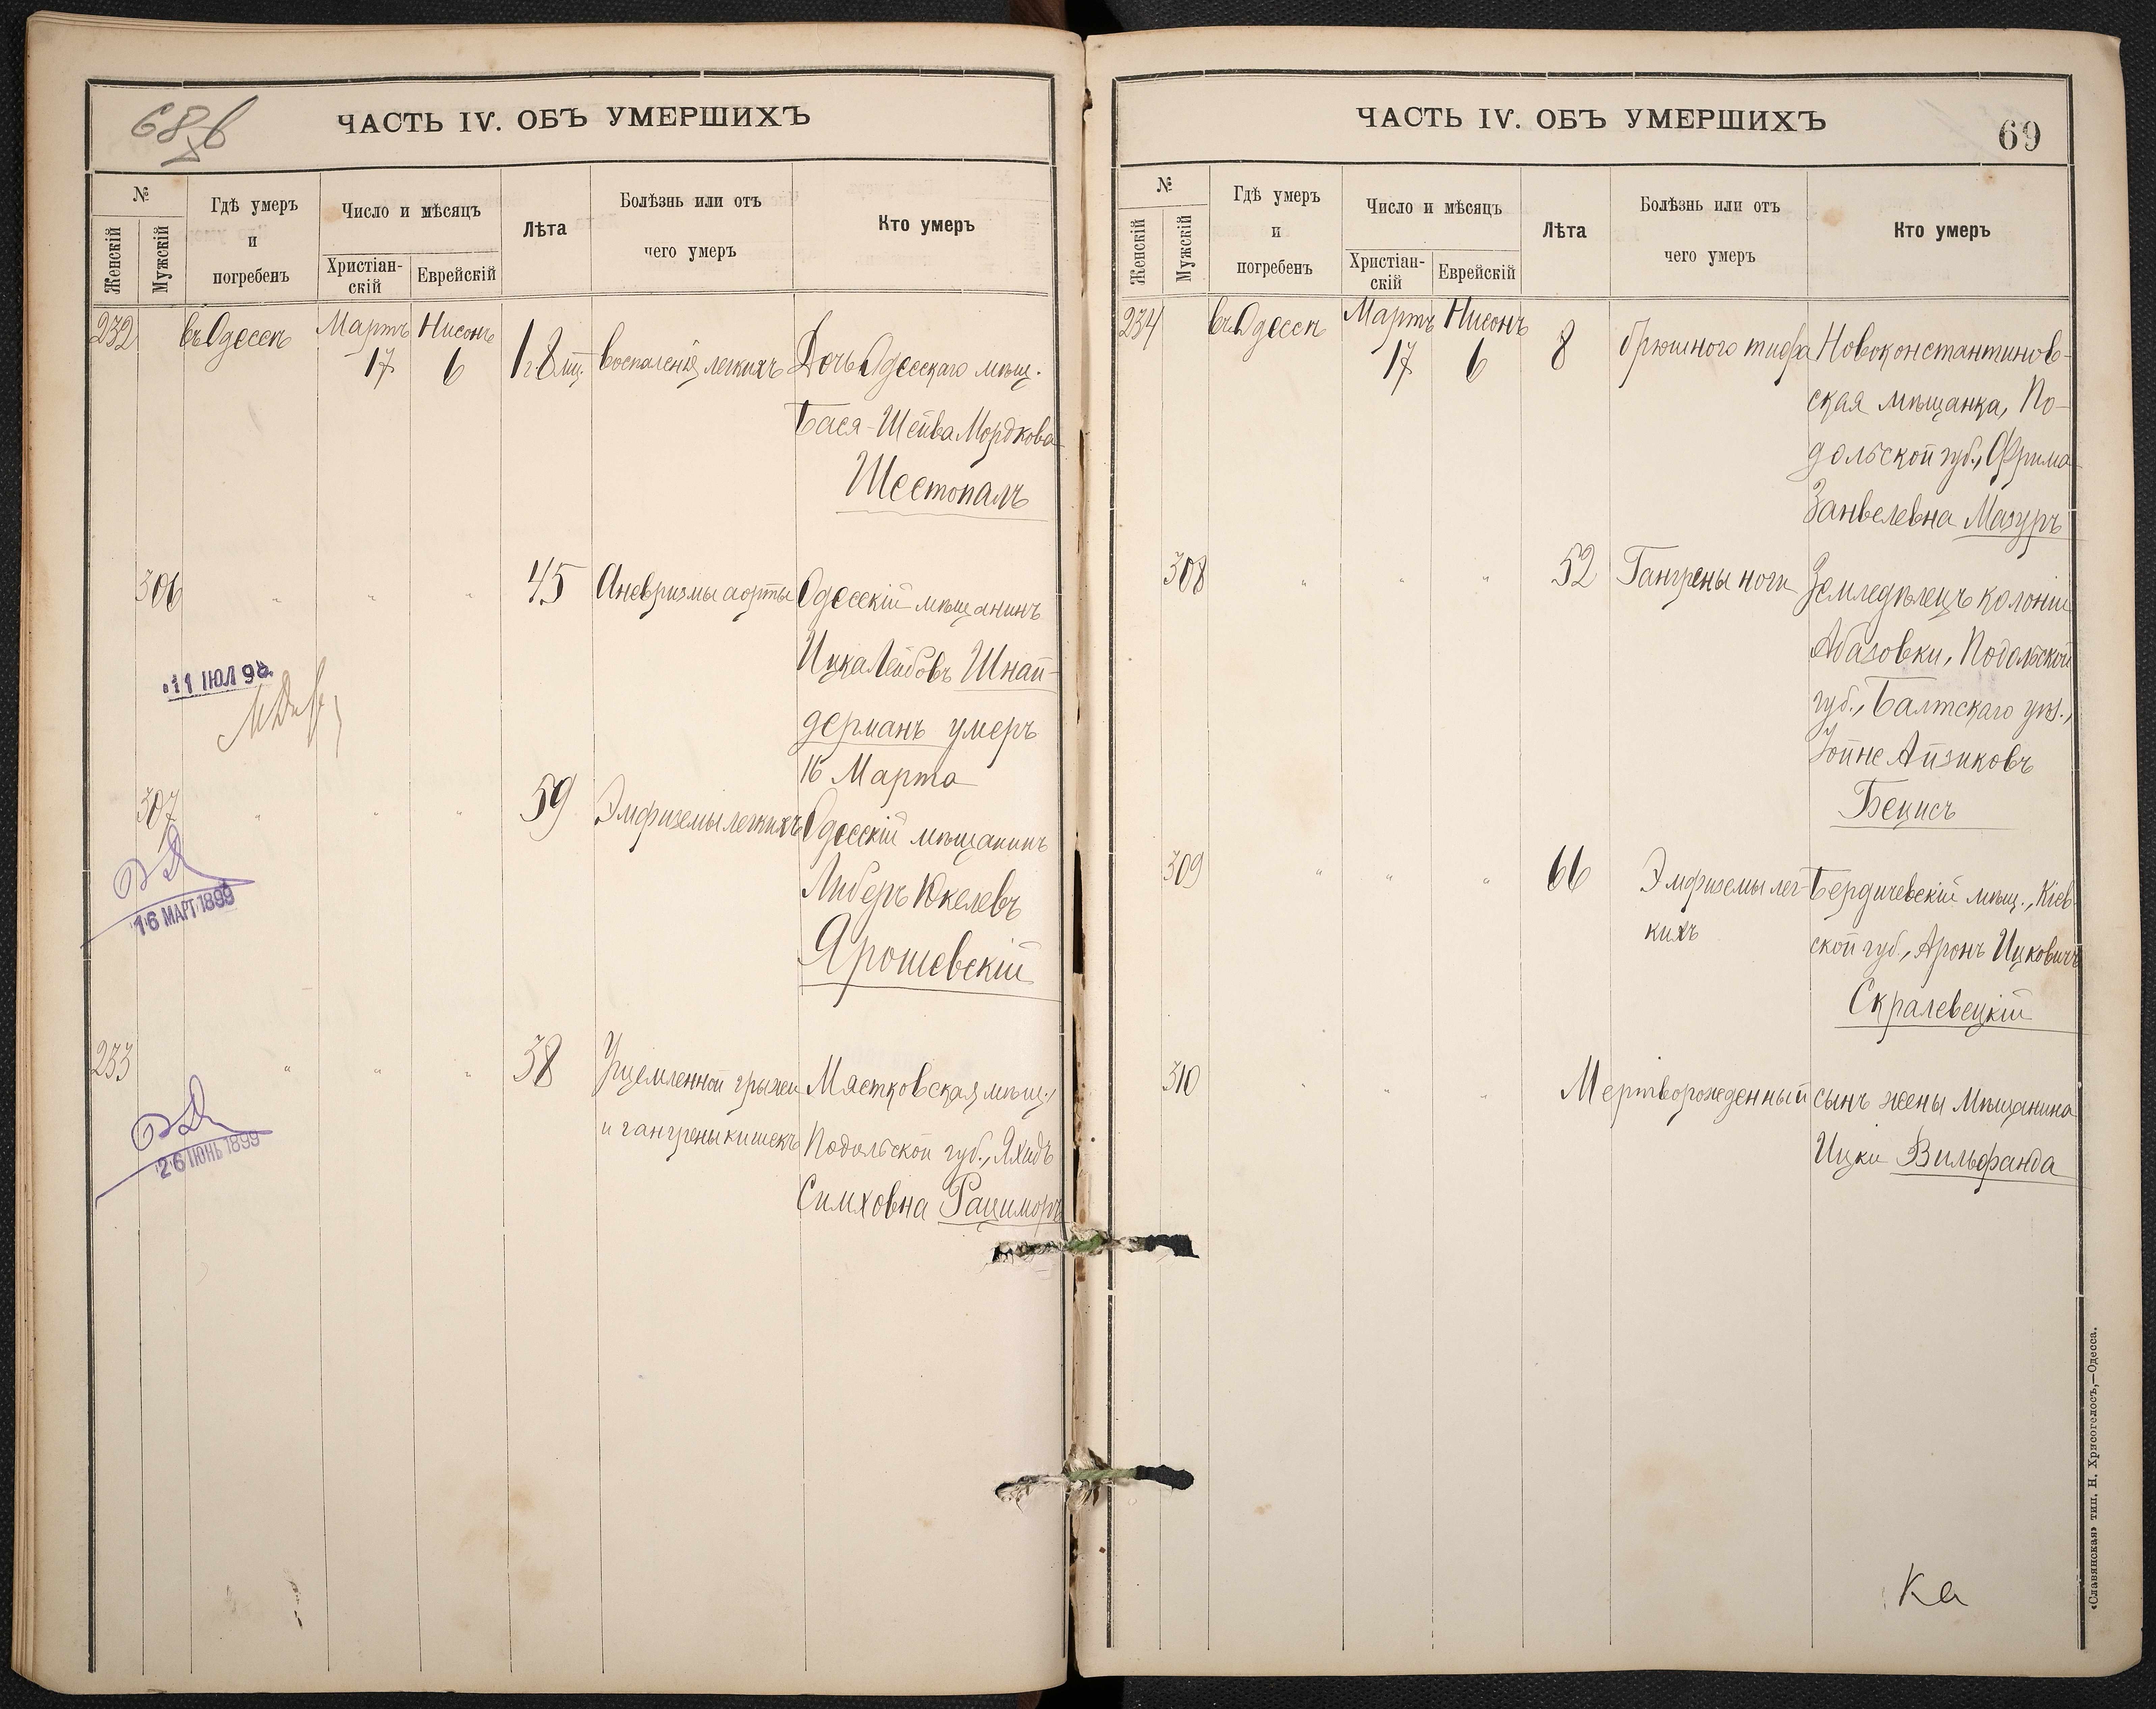 68 об
ЧАСТЬ IV. ОБЪ УМЕРШИХЪ
№
Женскій
Мужскій
Гдѣ умеръ
и
погребенъ
Число и мѣсяцъ
Христіан-
скій
Еврейскій
Лѣта
Болѣзнь или отъ
чего умеръ
Кто умеръ
232 въ Одессѣ Мартъ 17 Нисонъ 6 1 г. 8 мц. Воспаленія легкихъ Дочь Одесскаго мѣщ.
Бася-Шейва Мордкова
Шестопалъ
306 " " " 45 Аневризмы аорты Одесскій мѣщанинъ
Ицка Лейбовъ Шнай-
дерманъ умеръ
16 Марта
11 ІЮЛ 98
307 " " " 59 Эмфиземы легкихъ Одесскій мѣщанинъ
Либеръ Юкелевъ
Ярошевскій
16 МАРТ 1899
233 " " " 38 Ущемленной грыжи Мястковская мѣщ.,
и гангрены кишекъ Подольской губ., Яхидъ
Симховна Рациморъ
26 ІЮНЬ 1899
ЧАСТЬ IV. ОБЪ УМЕРШИХЪ
69
№
Женскій
Мужскій
Гдѣ умеръ
и
погребенъ
Число и мѣсяцъ
Христіан-
скій
Еврейскій
Лѣта
Болѣзнь или отъ
чего умеръ
Кто умеръ
234 въ Одессѣ Мартъ 17 Нисонъ 6 8 брюшного тифа Новоконстантинов-
ская мѣщанка, По-
дольской губ., Фрима
Занвелевна Мазуръ
308 " " " 52 Гангрены ноги Земледѣлецъ колоніи
Абазовки, Подольской
губ., Балтскаго уѣз.,
Іойне Айзиковъ
Бецисъ
309 " " " 66 Эмфиземы лег- Бердичевскій мѣщ., Кіев-
кихъ ской губ., Аронъ Ицковичъ
Скралевецкій
310 " " " Мертворожденный сынъ жены Мѣщанина
Ицки Вильфанда
Ка
«Славянская» тип. Н. Хрисогелосъ,—Одесса.